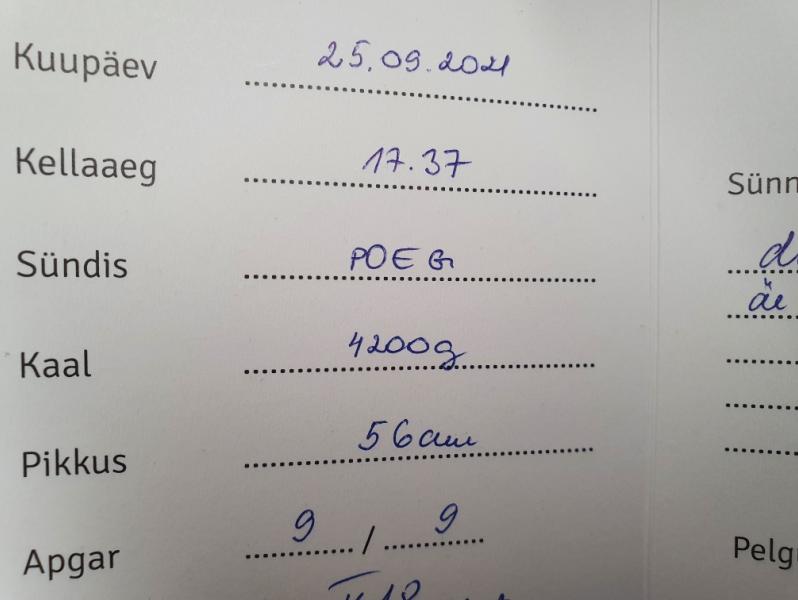 Kuupäev 25.09.2021
Kellaaeg 17.37
Sündis POEG
Kaal 4200g
Pikkus 56cm
Apgar 9 / 9
Sünn
äe
Pelg